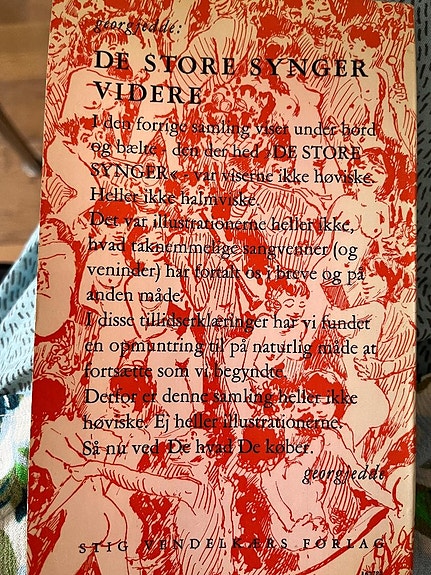 georgjedde:
DE STORE SYNGER
VIDERE
I den forrige samling viser under bord
og bælte – den der hed »DE STORE
SYNGER« – var viserne ikke høviske.
Heller ikke halmviske.
Det var illustrationerne heller ikke,
hvad taknemmelige sangvenner (og
veninder) har fortalt os i breve og på
anden måde.
I disse tillidserklæringer har vi fundet
en opmuntring til på naturlig måde at
fortsætte som vi begyndte.
Derfor er denne samling heller ikke
høviske. Ej heller illustrationerne.
Så nu ved De hvad De køber.
georgjedde
STIG VENDELKÆRS FORLAG